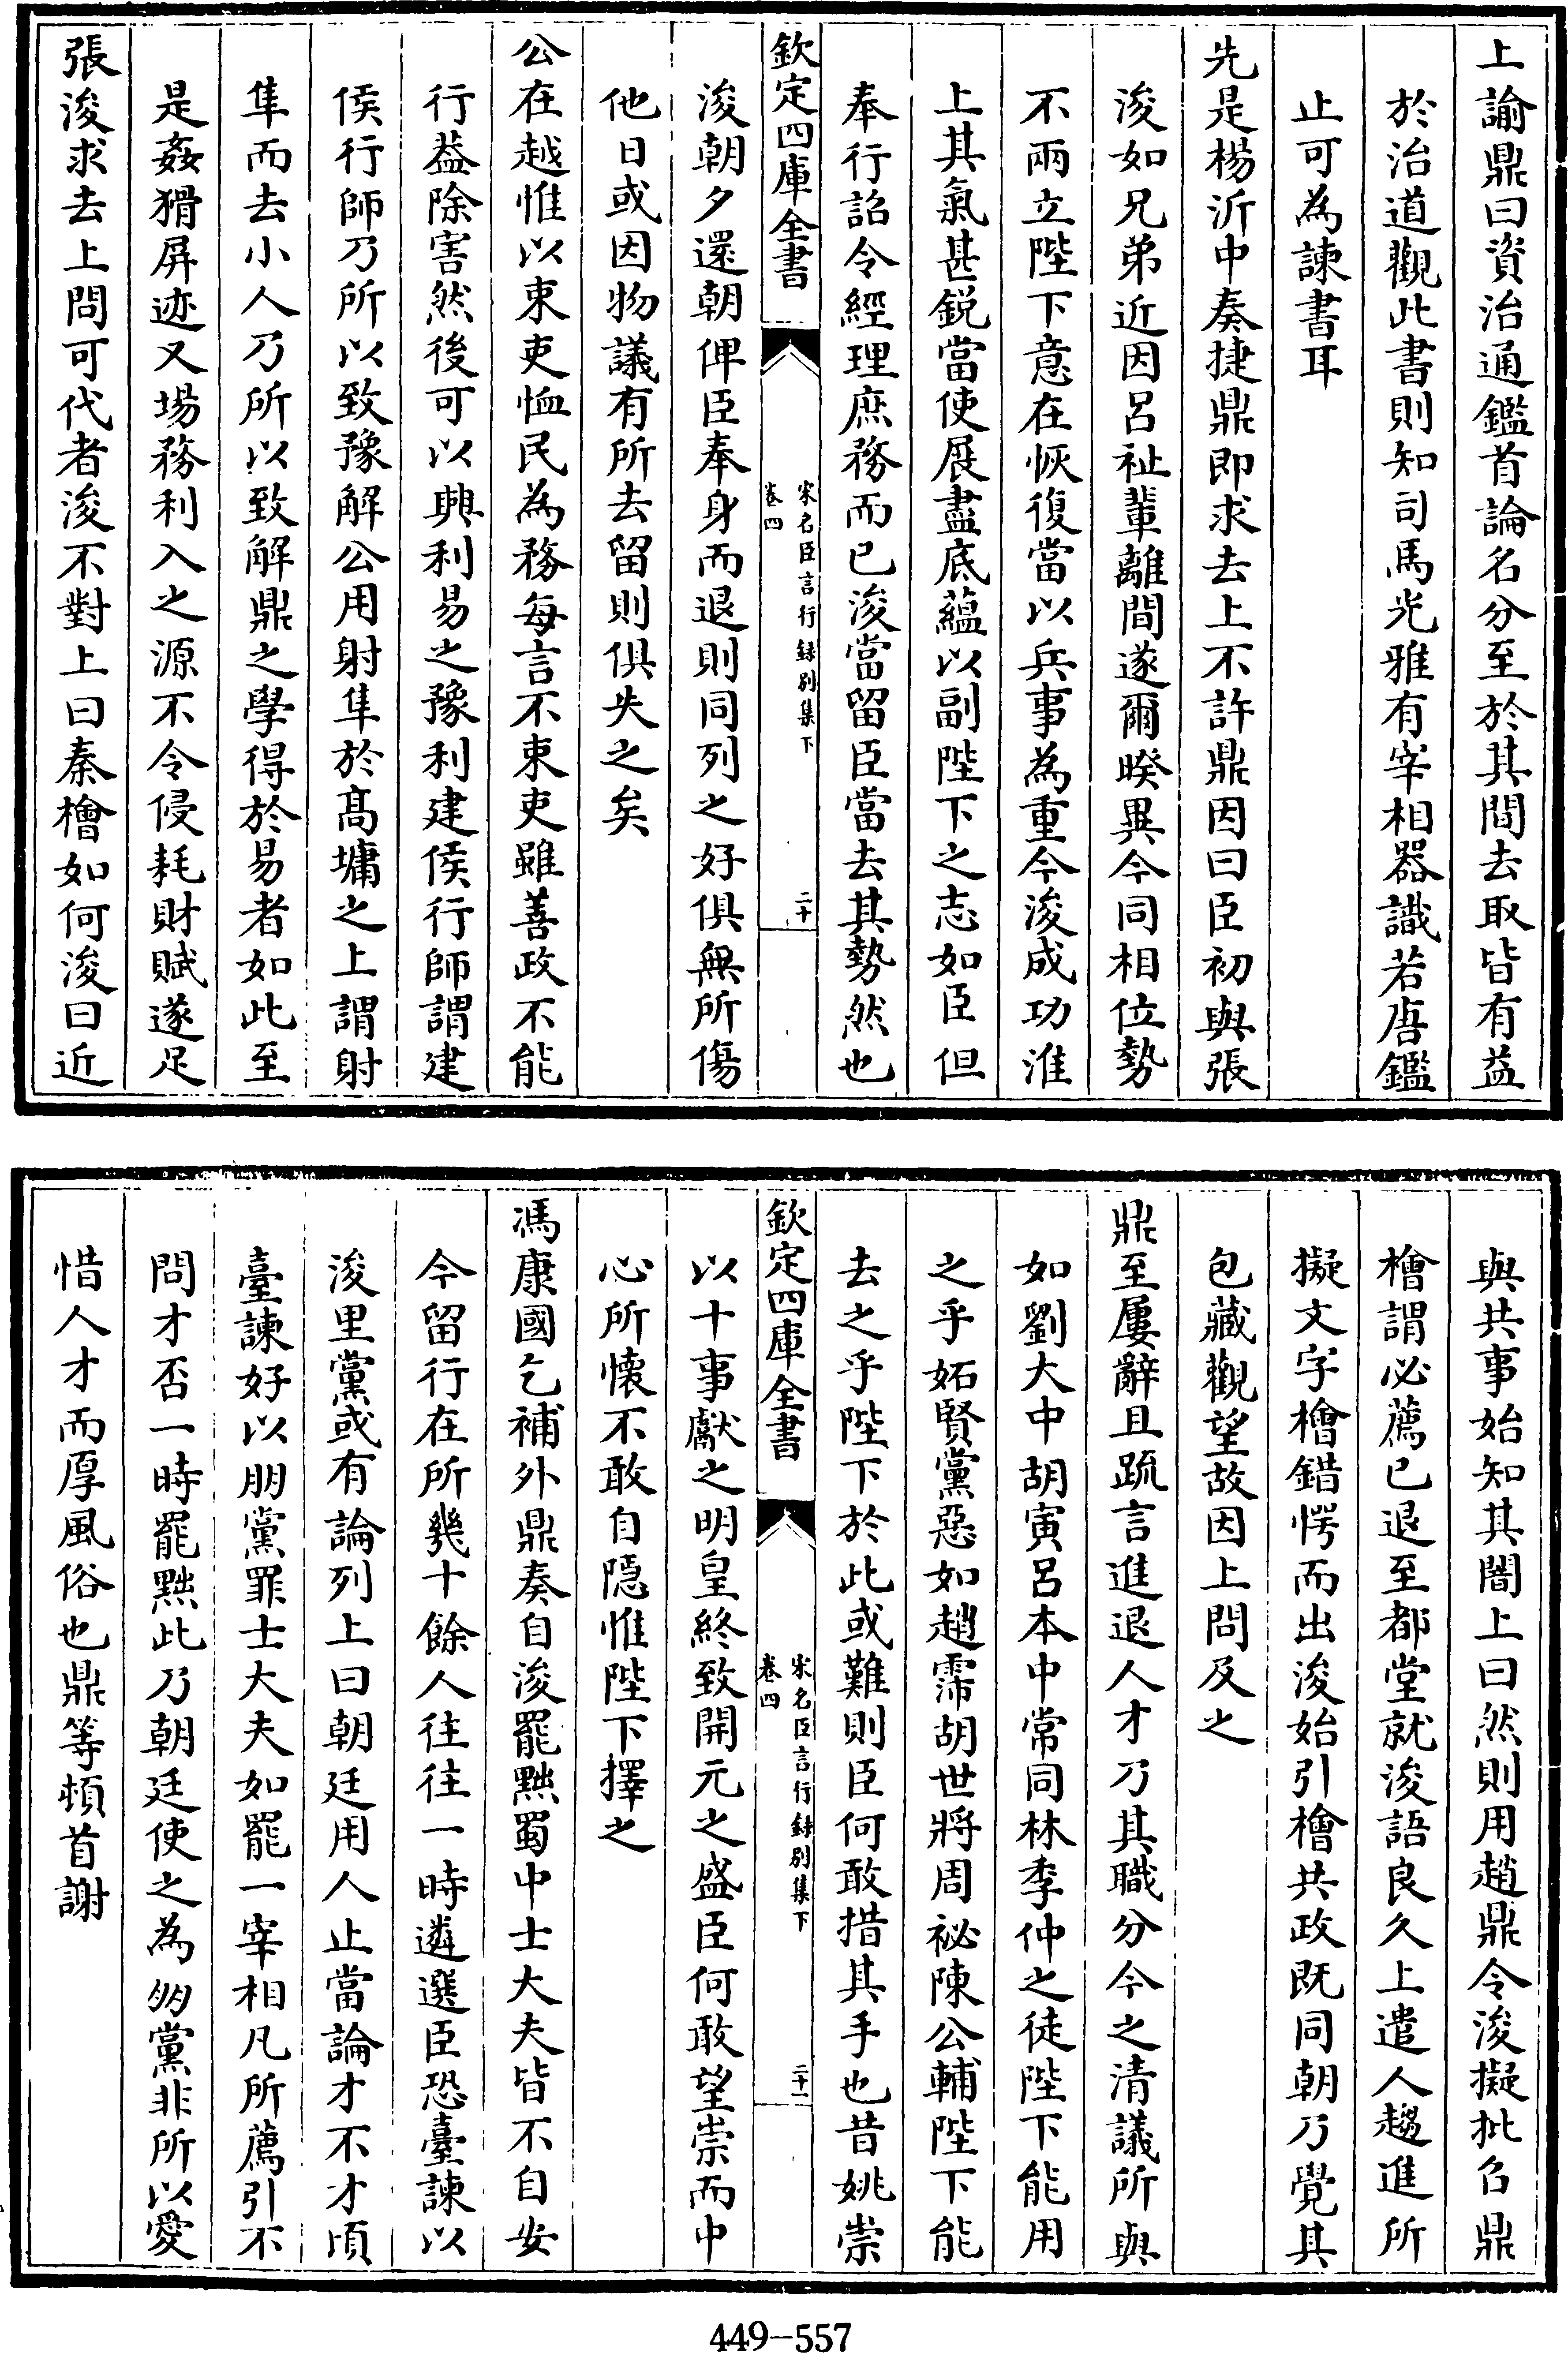 上諭鼎曰資治通鑑首論名分至於其間去取皆有益
於治道觀此書則知司馬光雅有宰相器識若唐鑑
止可為諫書耳
先是楊沂中奏捷鼎即求去上不許鼎因曰臣初與張
浚如兄弟近因呂祉輩離間遂爾暌異今同相位勢
不兩立陛下意在恢復當以兵事為重今浚成功淮
上其氣甚鋭當使展盡底蘊以副陛下之志如臣但
奉行詔令經理庶務而已浚當留臣當去其勢然也
欽定四庫全書
宋名臣言行録別集下
卷四
二十
浚朝夕還朝俾臣奉身而退則同列之好俱無所傷
他日或因物議有所去留則俱失之矣
公在越惟以束吏恤民為務每言不束吏雖善政不能
行葢除害然後可以興利易之豫利建侯行師謂建
侯行師乃所以致豫解公用射隼於髙墉之上謂射
隼而去小人乃所以致解鼎之學得於易者如此至
是姦猾屏迹又場務利入之源不令侵耗財賦遂足
張浚求去上問可代者浚不對上曰秦檜如何浚曰近
與共事始知其闇上曰然則用趙鼎令浚擬批召鼎
檜謂必薦已退至都堂就浚語良久上遣人趨進所
擬文字檜錯愕而出浚始引檜共政既同朝乃覺其
包藏觀望故因上問及之
鼎至屢辭且疏言進退人才乃其職分今之清議所與
如劉大中胡寅呂本中常同林季仲之徒陛下能用
之乎妬賢黨惡如趙霈胡世將周祕陳公輔陛下能
去之乎陛下於此或難則臣何敢措其手也昔姚崇
欽定四庫全書
宋名臣言行録別集下
卷四
二十一
以十事獻之明皇終致開元之盛臣何敢望崇而中
心所懷不敢自隱惟陛下擇之
馮康國乞補外鼎奏自浚罷黜蜀中士大夫皆不自安
今留行在所幾十餘人往往一時遴選臣恐臺諫以
浚里黨或有論列上曰朝廷用人止當論才不才頃
臺諫好以朋黨罪士大夫如罷一宰相凡所薦引不
問才否一時罷黜此乃朝廷使之為朋黨非所以愛
惜人才而厚風俗也鼎等頓首謝
449-557